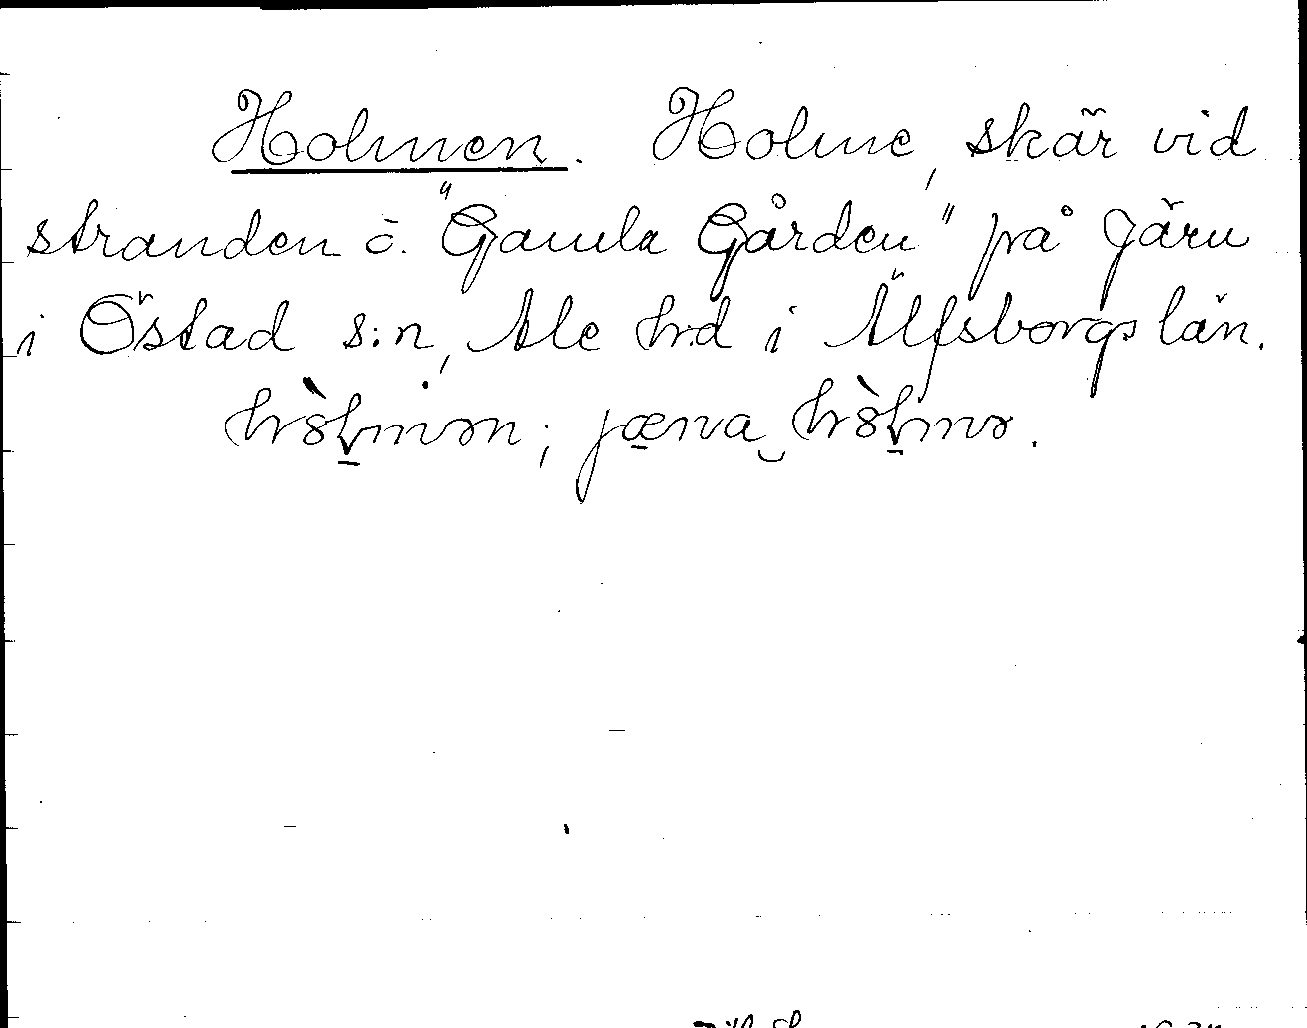 Holmen. Holme, skär vid
stranden ö. "Gamla Gården" på Järn
i Östad s:n, Ale hd i Älfsborgs län.